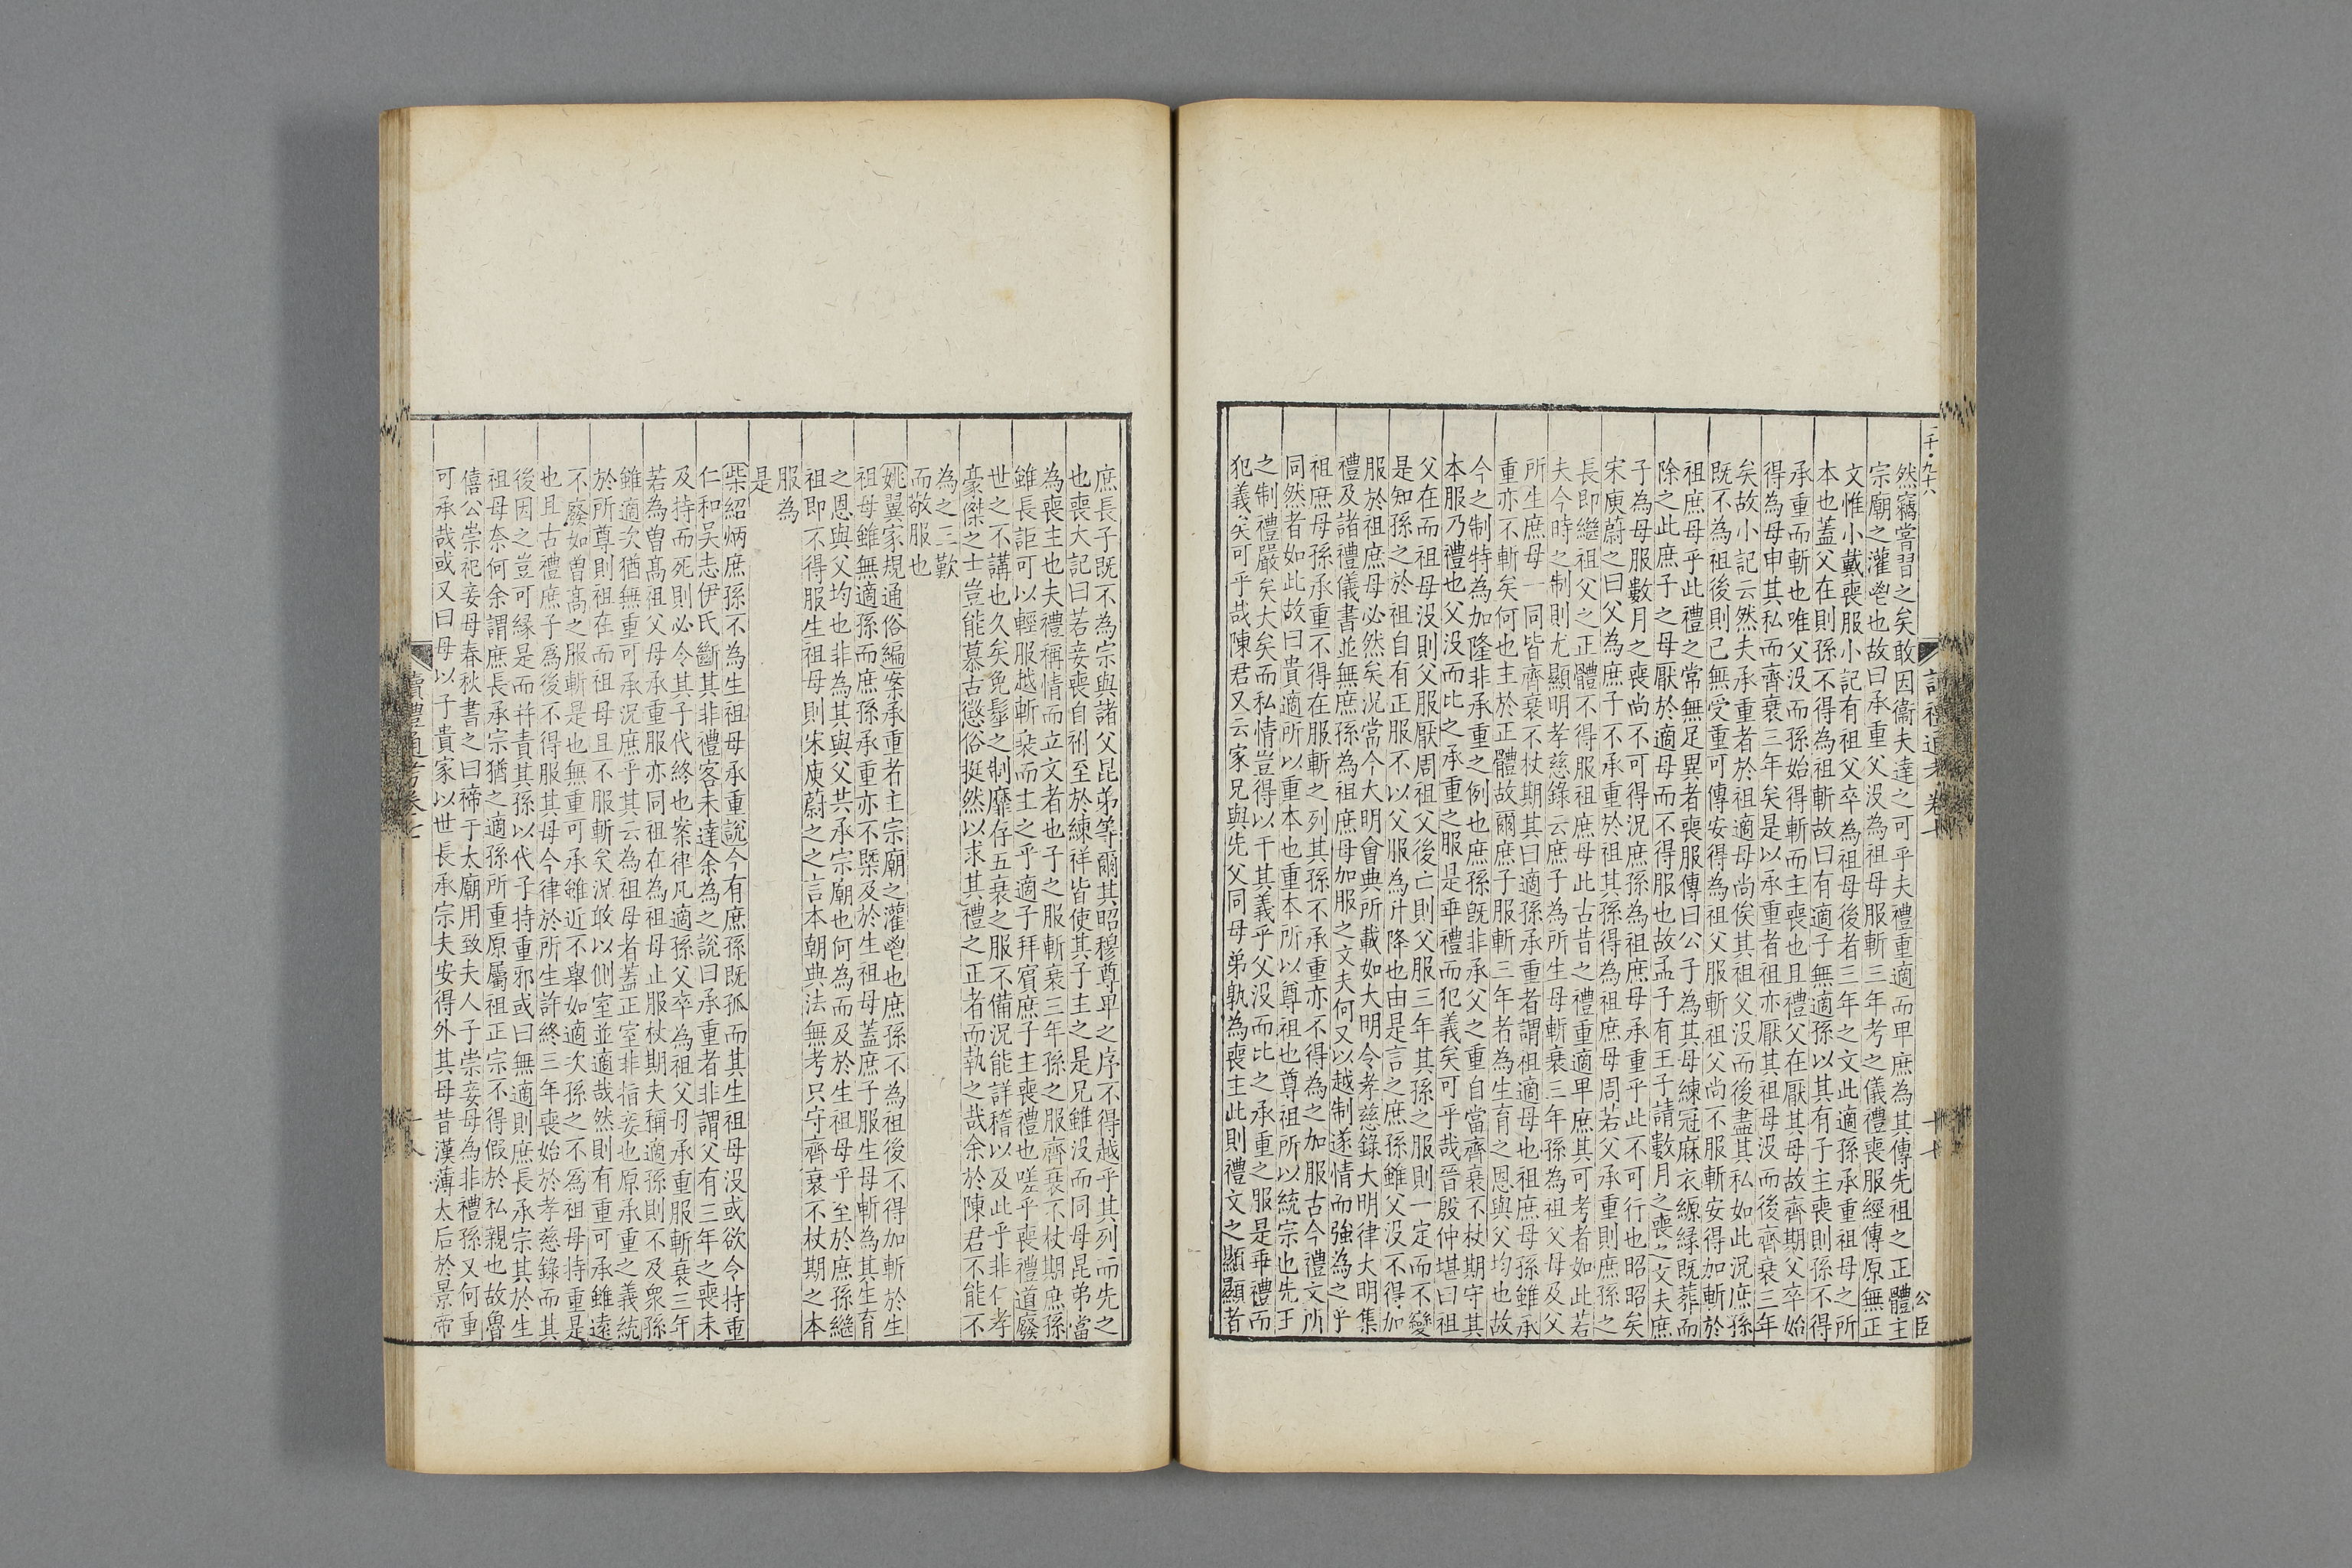 二千·九十六
讀禮通考 卷七
十七
公臣
然竊嘗習之矣敢因衞夫達之可乎夫禮重適而卑庶為其傳先祖之正體主
宗廟之灌鬯也故曰承重父没為祖母服斬三年考之儀禮喪服經傳原無正
文惟小戴喪服小記有祖父卒為祖母後者三年之文此適孫承重祖母之所
本也蓋父在則孫不得為祖斬故曰有適子無適孫以其有子主喪則孫不得
承重而斬也唯父没而孫始得斬而主喪也且禮父在厭其母故齊期父卒始
得為母申其私而齊衰三年矣是以承重者祖亦厭其祖母没而後齊衰三年
矣故小記云然夫承重者於祖適母尚俟其祖父没而後盡其私如此況庶孫
既不為祖後則已無受重可傳安得為祖父服斬祖父尚不服斬安得加斬於
祖庶母乎此禮之常無足異者喪服傳曰公子為其母練冠麻衣縓緣既葬而
除之此庶子之母厭於適母而不得服也故孟子有王子請數月之喪之文夫庶
子為母服數月之喪尚不可得況庶孫為祖庶母承重乎此不可行也昭昭矣
宋庾蔚之曰父為庶子不承重於祖其孫得為祖庶母周若父承重則庶孫之
長即繼祖父之正體不得服祖庶母此古昔之禮重適卑庶其可考者如此若
夫今時之制則尤顯明孝慈錄云庶子為所生母斬衰三年孫為祖父母及父
所生庶母一同皆齊衰不杖期其曰適孫承重者謂祖適母也祖庶母孫雖承
重亦不斬矣何也主於正體故爾庶子服斬三年者為生育之恩與父均也故
今之制特為加隆非承重之例也庶孫旣非承父之重自當齊衰不杖期守其
本服乃禮也父没而比之承重之服是乖禮而犯義矣可乎哉晉殷仲堪曰祖
父在而祖母没則父服厭周祖父後亡則父服三年其孫之服則一定而不變
是知孫之於祖自有正服不以父服為升降也由是言之庶孫雖父没不得加
服於祖庶母必然矣況當今大明會典所載如大明令孝慈錄大明律大明集
禮及諸禮儀書並無庶孫為祖庶母加服之文夫何又以越制遂情而強為之乎
祖庶母孫承重不得在服斬之列其孫不承重亦不得為之加服古今禮文所
同然者如此故曰貴適所以重本也重本所以尊祖也尊祖所以統宗也先王
之制禮嚴矣大矣而私情豈得以干其義乎父没而比之承重之服是乖禮而
犯義矣可乎哉陳君又云家兄與先父同母弟孰為喪主此則禮文之顯顯者
庶長子既不為宗與諸父昆弟等爾其昭穆尊卑之序不得越乎其列而先之
也喪大記曰若妾喪自祔至於練祥皆使其子主之是兄雖没而同母昆弟當
為喪主也夫禮稱情而立文者也子之服斬衰三年孫之服齊衰不杖期庶孫
雖長詎可以輕服越斬衰而主之乎適子拜賓庶子主喪禮也嗟乎喪禮道廢
世之不講也久矣免髽之制靡存五衰之服不備況能詳稽以及此乎非仁孝
豪傑之士豈能慕古懲俗挺然以求其禮之正者而執之哉余於陳君不能不
為之三歎
而敬服也
姚翼家規通俗編案承重者主宗廟之灌鬯也庶孫不為祖後不得加斬於生
祖母雖無適孫而庶孫承重亦不槩及於生祖母蓋庶子服生母斬為其生育
之恩與父均也非為其與父共承宗廟也何為而及於生祖母乎至於庶孫繼
祖即不得服生祖母則宋庾蔚之之言本朝典法無考只守齊衰不杖期之本
服為
是
柴紹炳庶孫不為生祖母承重説今有庶孫既孤而其生祖母没或欲令持重
仁和吴志伊氏斷其非禮客未達余為之説曰承重者非謂父有三年之喪未
及持而死則必令其子代終也案律凡適孫父卒為祖父母承重服斬衰三年
若為曾髙祖父母承重服亦同祖在為祖母止服杖期夫稱適孫則不及衆孫
雖適次猶無重可承況庶乎其云為祖母者蓋正室非指妾也原承重之義統
於所尊則祖在而祖母且不服斬矣況敢以側室並適哉然則有重可承雖遠
不廢如曾髙之服斬是也無重可承雖近不舉如適次孫之不爲祖母持重是
也且古禮庶子爲後不得服其母今律於所生許終三年喪始於孝慈錄而其
後因之豈可緣是而并責其孫以代子持重邪或曰無適則庶長承宗其於生
祖母奈何余謂庶長承宗猶之適孫所重原屬祖正宗不得假於私親也故魯
僖公崇祀妾母春秋書之曰禘于太廟用致夫人子崇妾母為非禮孫又何重
可承哉或又曰母以子貴家以世長承宗夫安得外其母昔漢薄太后於景帝
讀禮通考卷七
十八